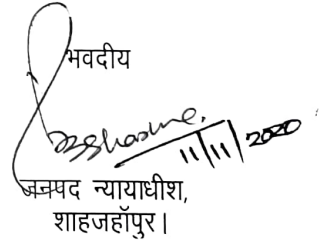 भवदीय
11/11/2020
जनपद न्यायाधीश,
शाहजहॉपुर।